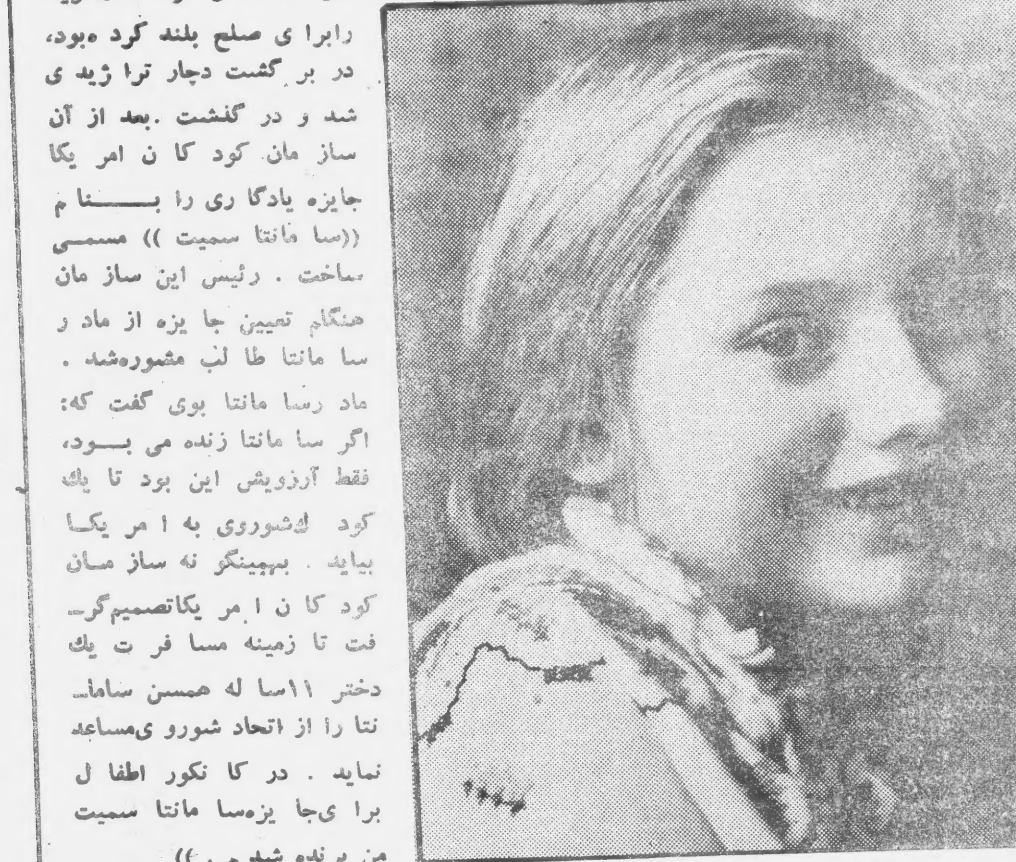 رابرا ی صلح بلند کرد ەبود،
در بر گشت دچار ترا ژید ی
شد و در گذشت .بعد از آن
ساز مان کود کا ن امر یکا
جایزه یادگا ری را بـــــنا م
((سا مانتا سمیت )) مسمـی
ساخت . رئیس این ساز مان
هنگام تعیین جا یزه از ماد ر
سا مانتا طا لب مشورەشد .
ماد رسا مانتا بوی گفت که:
اگر سا مانتا زنده می بـــود،
فقط آرزویش این بود تا یك
کود كشوروی به ا مر یکـا
بیاید . بهمینگو نه ساز مـان
کود کا ن ا مر یکاتصمیم‌گرـ
فت تا زمینه مسا فر ت یك
دختر ۱۱سا له همسن ساماـ
نتا را از اتحاد شورو ی‌مساعد
نماید . در کا نکور اطفا ل
برا ی‌جا یزەسا مانتا سمیت
من برنده شد م . ))